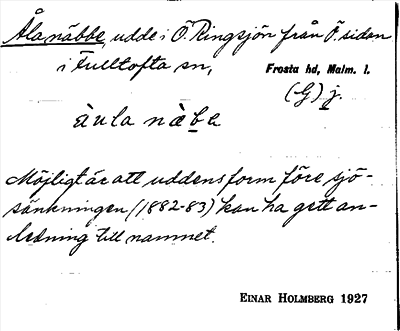 Ålanäbbe, udde i Ö. Ringsjön från Ö. sidan
i Fulltofta sn,
Frosta hd, Malm. l.
(G) j.
àula näbe
Möjligt är att uddens form före sjö-
sänkningen (1882-83) kan ha gett an-
ledning till namnet.
EINAR HOLMBERG 1927